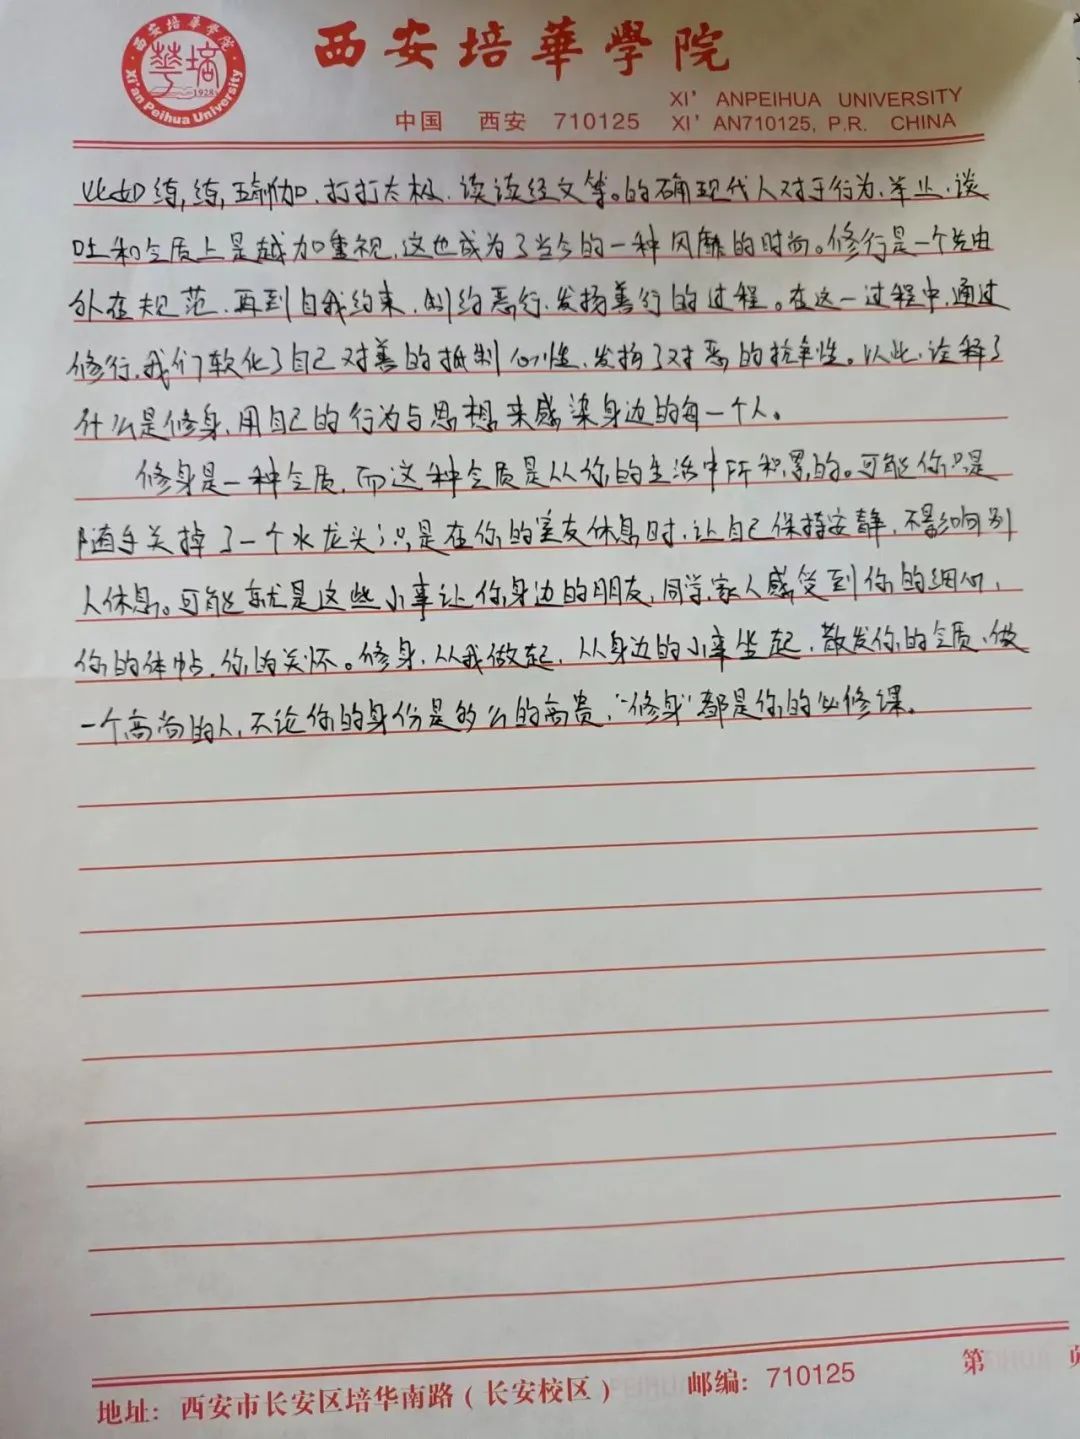 西安培華學院
西安培華學院
Xi'an Peihua University
1928
XI' ANPEIHUA UNIVERSITY
中国 西安 710125 XI' AN710125, P.R. CHINA
比如练,练,瑜伽、打打太极、读读经文等。的确现代人对于行为、举止、谈
吐和气质上是越加重视,这也成为了当今的一种风靡的时尚。修行是一个先由
外在规范、再到自我约束,制约恶行、发扬善行的过程。在这一过程中,通过
修行,我们软化了自己对善的抵制心性,发扬了对恶的抗争性。以此,诠释了
什么是修身、用自己的行为与思想来感染身边的每一个人。
修身是一种气质,而这种气质是从你的生活中所积累的。可能你只是
随手关掉了一个水龙头;只是在你的室友休息时,让自己保持安静,不影响别
人休息。可能就是这些小事让你身边的朋友,同学,家人感受到你的细心,
你的体帖,你的关怀。修身,从我做起,从身边的小事坐起,散发你的气质,做
一个高尚的人,不论你的身份是多么的高贵,“修身”都是你的必修课。
地址: 西安市长安区培华南路(长安校区) 邮编: 710125 第 页